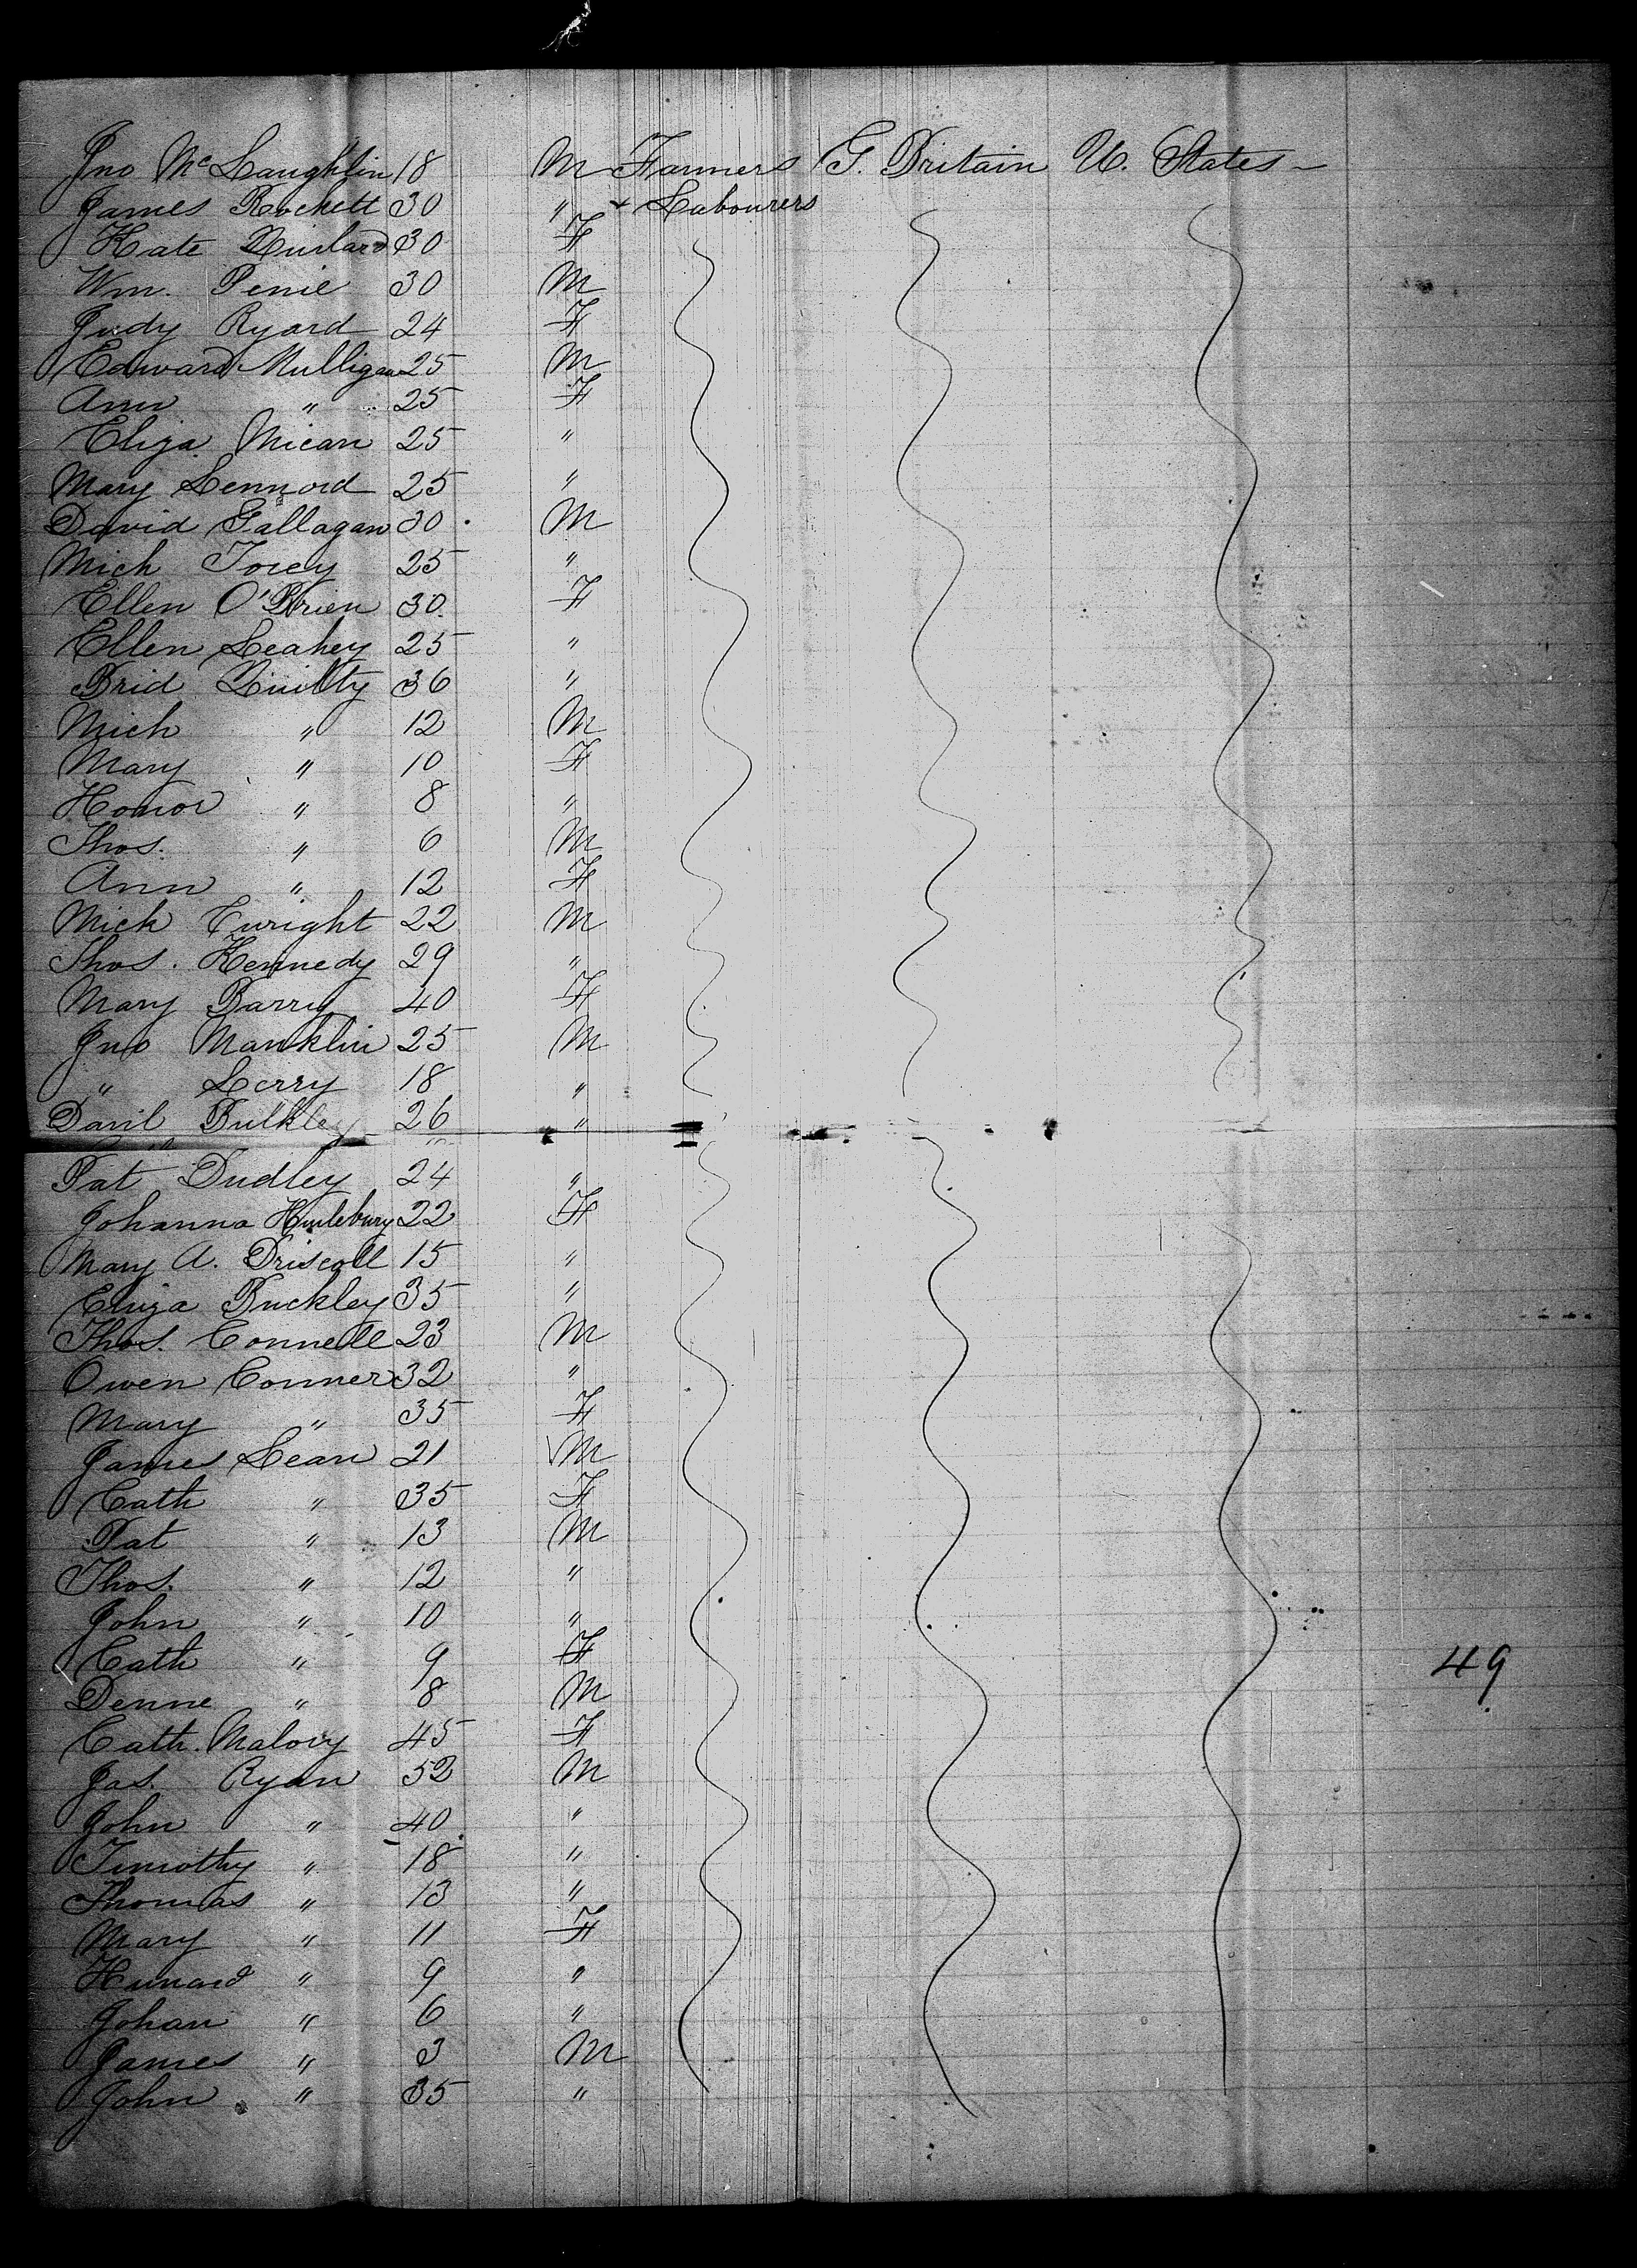 Jno McLaughlin 18 M Farmers G. Britain U. States
James Rockett 30 " & Labourers
Kate 30 F
Wm. Penie 30 M
Judy Ryard 24 F
Edward Mulligan 25 M
Ann " 25 F
Eliza Mican 25 "
Mary Lennord 25 "
David Gallagan 30 M
Mich Torey 25 "
Ellen O'Brien 30 F
Ellen Leahey 25 "
Brid Quilty 36 "
Mich " 12 M
Mary " 10 F
Honor " 8 "
Thos. " 6 M
Ann " 12 F
Mick Curight 22 M
Thos. Kennedy 29 "
Mary Barry 40 F
Jno Manklin 25 M
" Lerry 18 "
Danl Bulkley 26 "
Pat Dudley 24 "
Johanna 22 F
Mary A. Driscoll 15 "
Eliza Buckley 35 "
Thos. Connell 23 M
Owen Conner 32 "
Mary " 35 F
James Lean 21 M
Cath " 35 F
Pat " 13 M
Thos. " 12 "
John " 10 "
Cath " 9 F
Denne " 8 M
Cath. Malovy 45 F
Jas. Ryan 52 M
John " 40 "
Timothy " 18 "
Thomas " 13 "
Mary " 11 F
" 9 "
Johan " 6 "
James " 3 M
John " 35 "
49